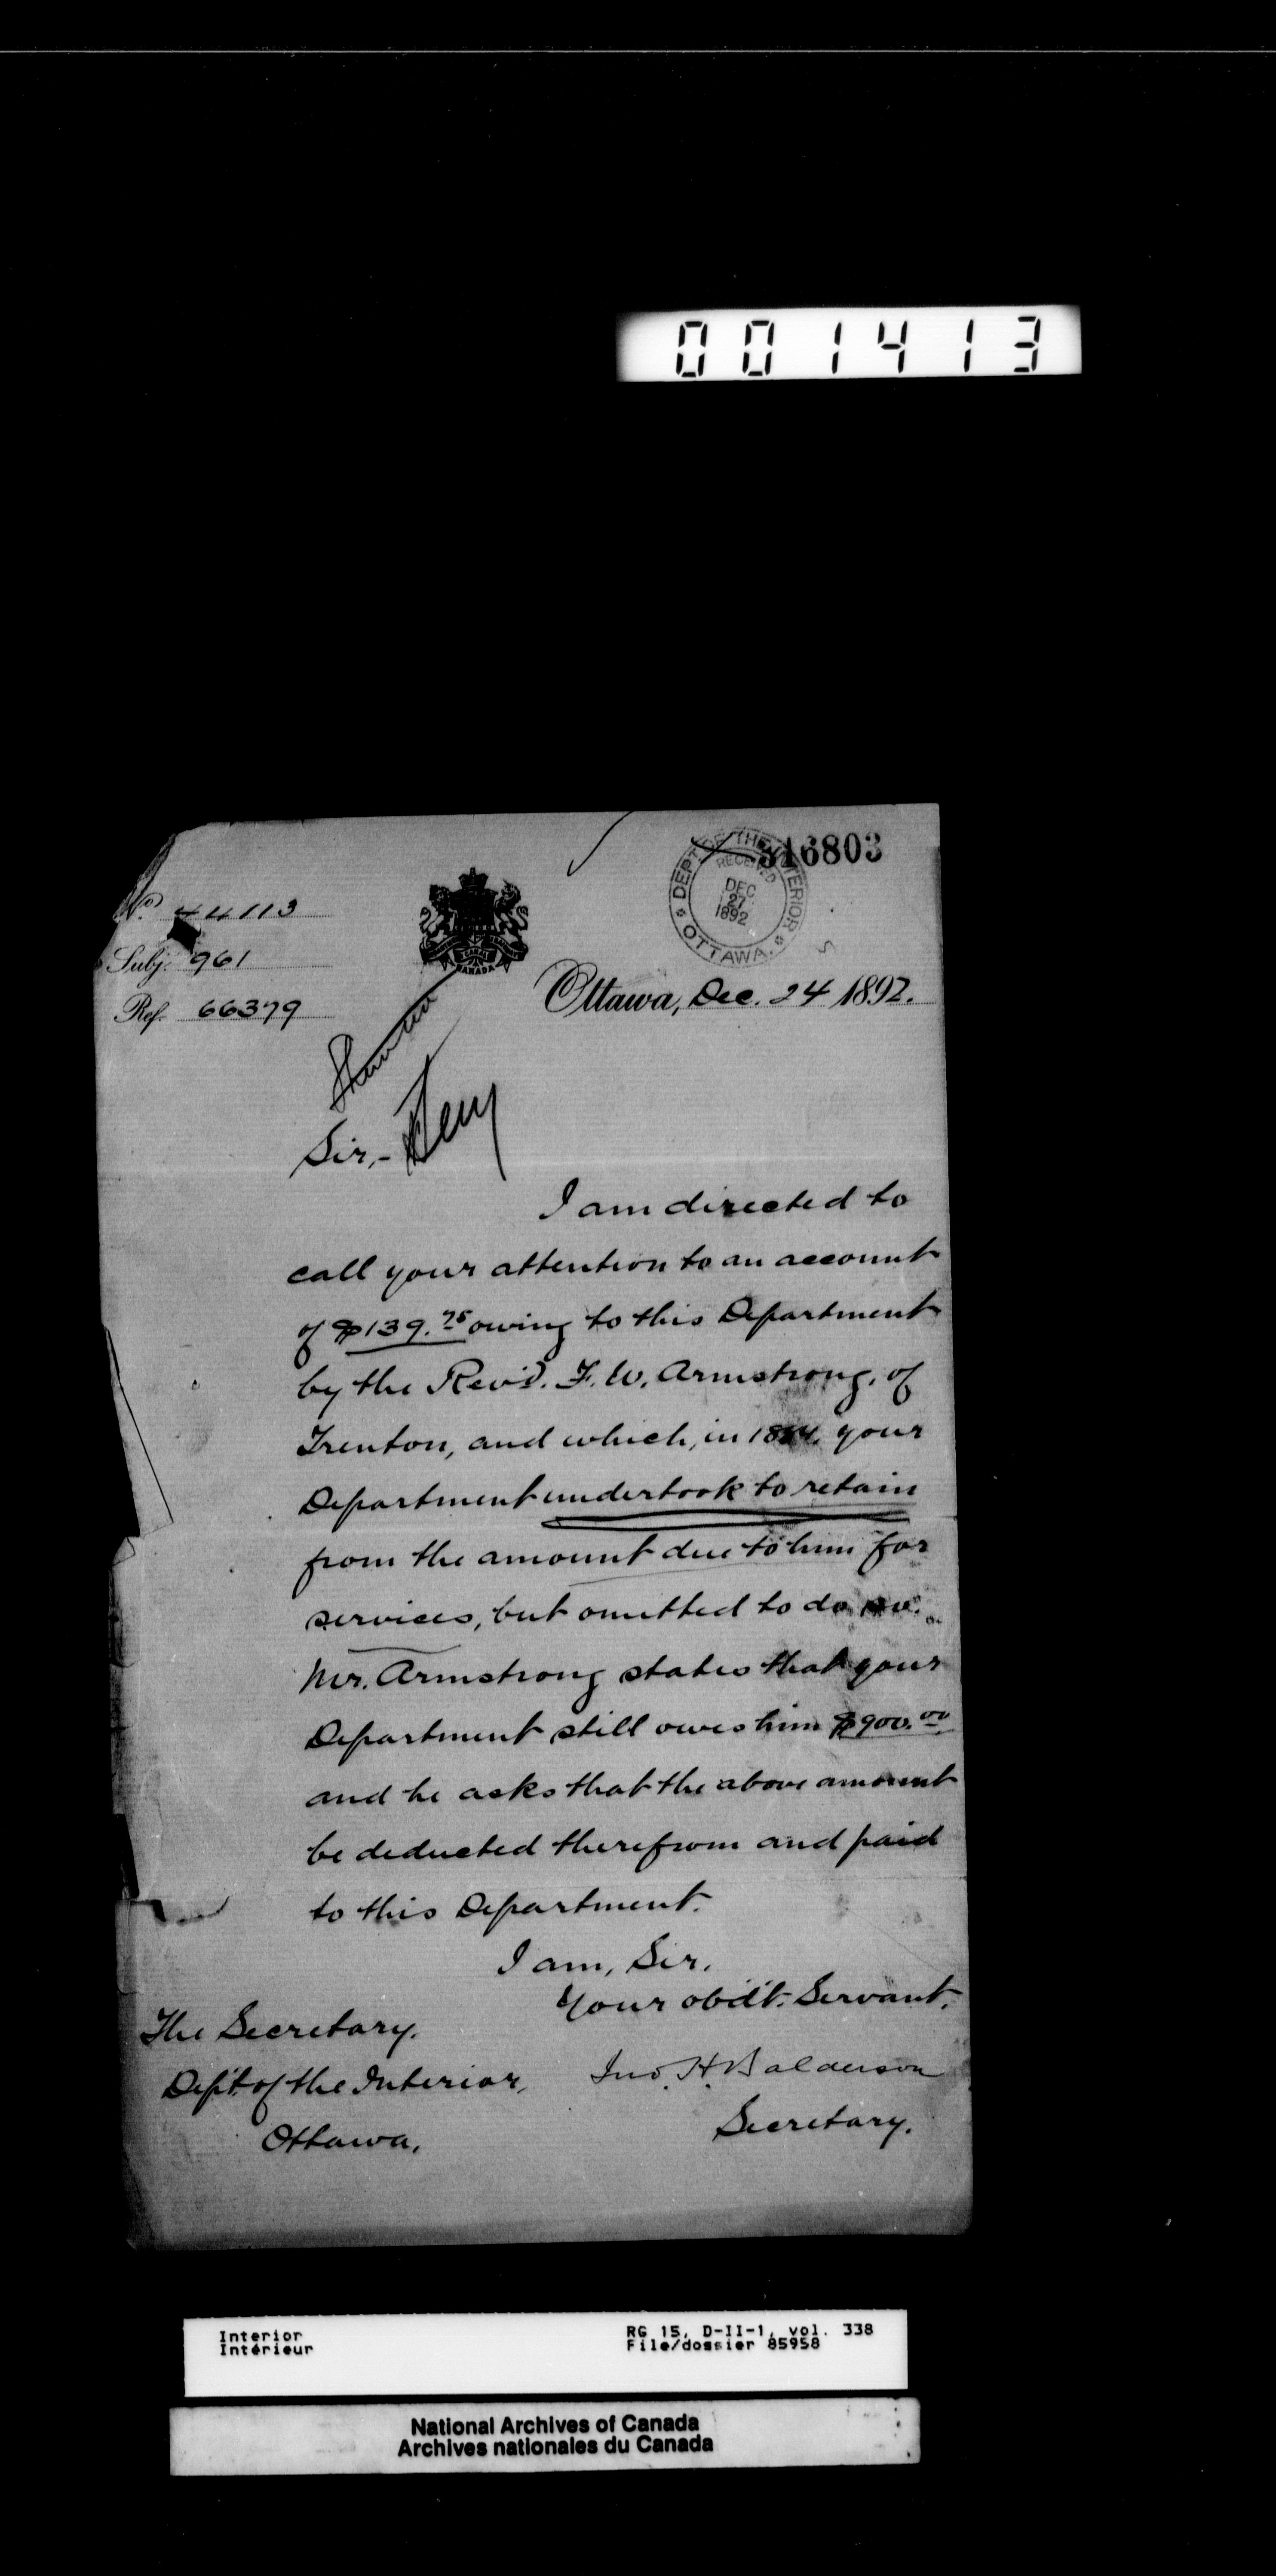 001413
316803
DEPT. OF THE INTERIOR
RECEIVED
DEC
27
1892
OTTAWA.
No. 44113
Subj. 961
Ref. 66379
CANADA
Ottawa, Dec. 24 1892.
Sir,-
I am directed to
call your attention to an account
of $139.75 owing to this Department
by the Rev'd. F. W. Armstrong, of
Trenton, and which, in 1884, your
Department undertook to retain
from the amount due to him for
services, but omitted to do so.
Mr. Armstrong states that your
Department still owes him $900.00
and he asks that the above amount
be deducted therefrom and paid
to this Department.
I am, Sir,
Your obd't. Servant,
The Secretary.
Dep't. of the Interior,
Ottawa.
Jno. H. Balderson
Secretary.
Interior
Intérieur
RG 15, D-II-1, vol. 338
File/dossier 85958
National Archives of Canada
Archives nationales du Canada